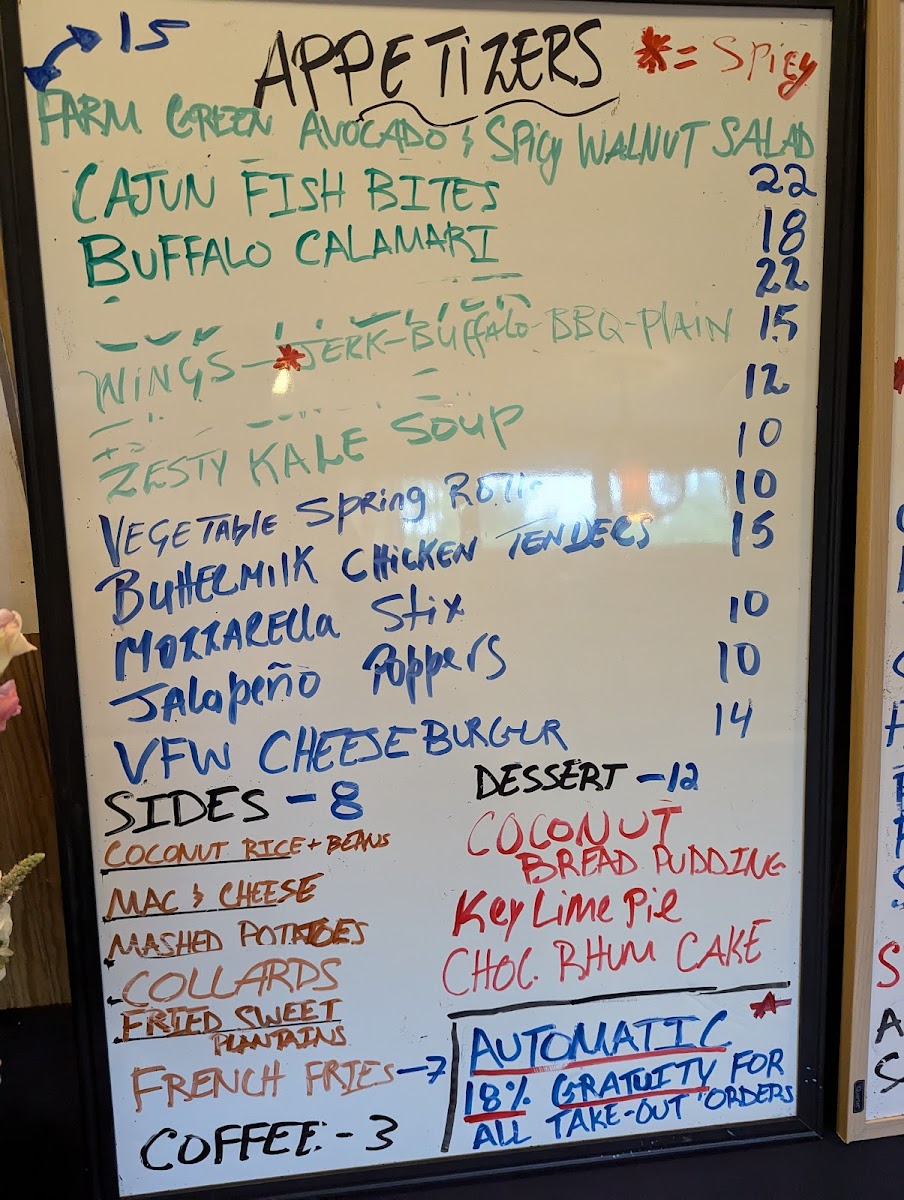 15 APPETIZERS * = Spicy
FARM GREEN AVOCADO & SPICY WALNUT SALAD
CAJUN FISH BITES 22
BUFFALO CALAMARI 18
22
WINGS - *JERK - BUFFALO - BBQ - PLAIN 15
12
ZESTY KALE SOUP 10
VEGETABLE SPRING ROLLS 10
BUTTERMILK CHICKEN TENDERS 15
MOZZARELLA STIX 10
JALAPEÑO POPPERS 10
VFW CHEESEBURGER 14
SIDES - 8
COCONUT RICE + BEANS
MAC & CHEESE
MASHED POTATOES
COLLARDS
FRIED SWEET
PLANTAINS
FRENCH FRIES → 7
COFFEE - 3
DESSERT - 12
COCONUT
BREAD PUDDING
Key Lime Pie
CHOC. RHUM CAKE
AUTOMATIC
18% GRATUITY FOR
ALL TAKE-OUT ORDERS